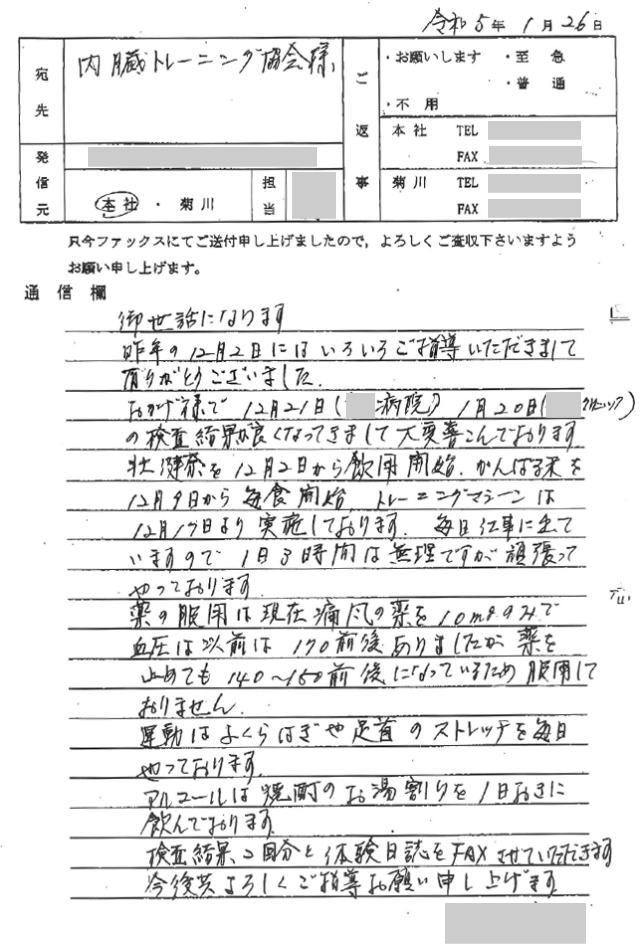 令和5年1月26日
宛先
内臓トレーニング協会様
ご返事
・お願いします ・至急
・普通
・不用
本社 TEL
FAX
菊川 TEL
FAX
発信元
本社 ・ 菊川
担当
只今ファックスにてご送付申し上げましたので,よろしくご査収下さいますよう
お願い申し上げます。
通信欄
御世話になります
昨年の12月2日にはいろいろご指導いただきまして
有りがとうございました.
おかげ様で 12月21日( 病院) 1月20日( クリニック)
の検査結果が良くなってきまして大変喜こんでおります
壮健茶を12月2日から飲用開始. がんばる末を
12月9日から毎食開始. トレーニングマシーンは
12月17日より実施しております. 毎日仕事に出て
いますので 1日3時間は無理ですが頑張って
やっております.
薬の服用は現在痛風の薬を10mgのみで
血圧は以前は170前後ありましたが薬を
止めても140~150前後になっているため服用して
おりません.
運動はふくらはぎや足首のストレッチを毎日
やっております.
アルコールは焼酎のお湯割りを1日おきに
飲んでおります.
検査結果2回分と体験日誌をFAXさせていただきます
今後共よろしくご指導お願い申し上げます